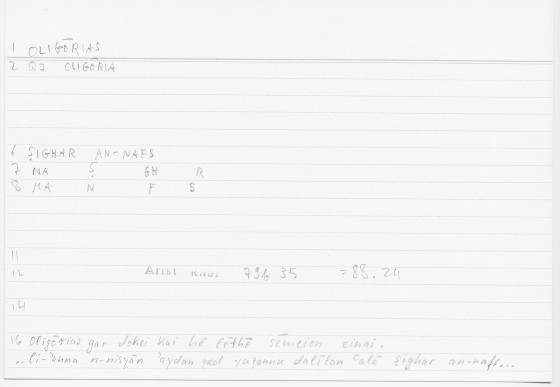 1 OLIGŌRIAS
2 QJ OLIGŌRIA
6 ṢIGHAR AN-NAFS
7 NA Ṣ GH R
8 MA N F S
11
12 Arist 79b 35 = 88.24
14
16 Oligōrias gar dokei kai hē lēthē sēmeion einai.
..li-'anna n-nisyān 'ayḍan qad yuẓannu dalīlan ʿalā ṣighar an-nafs...